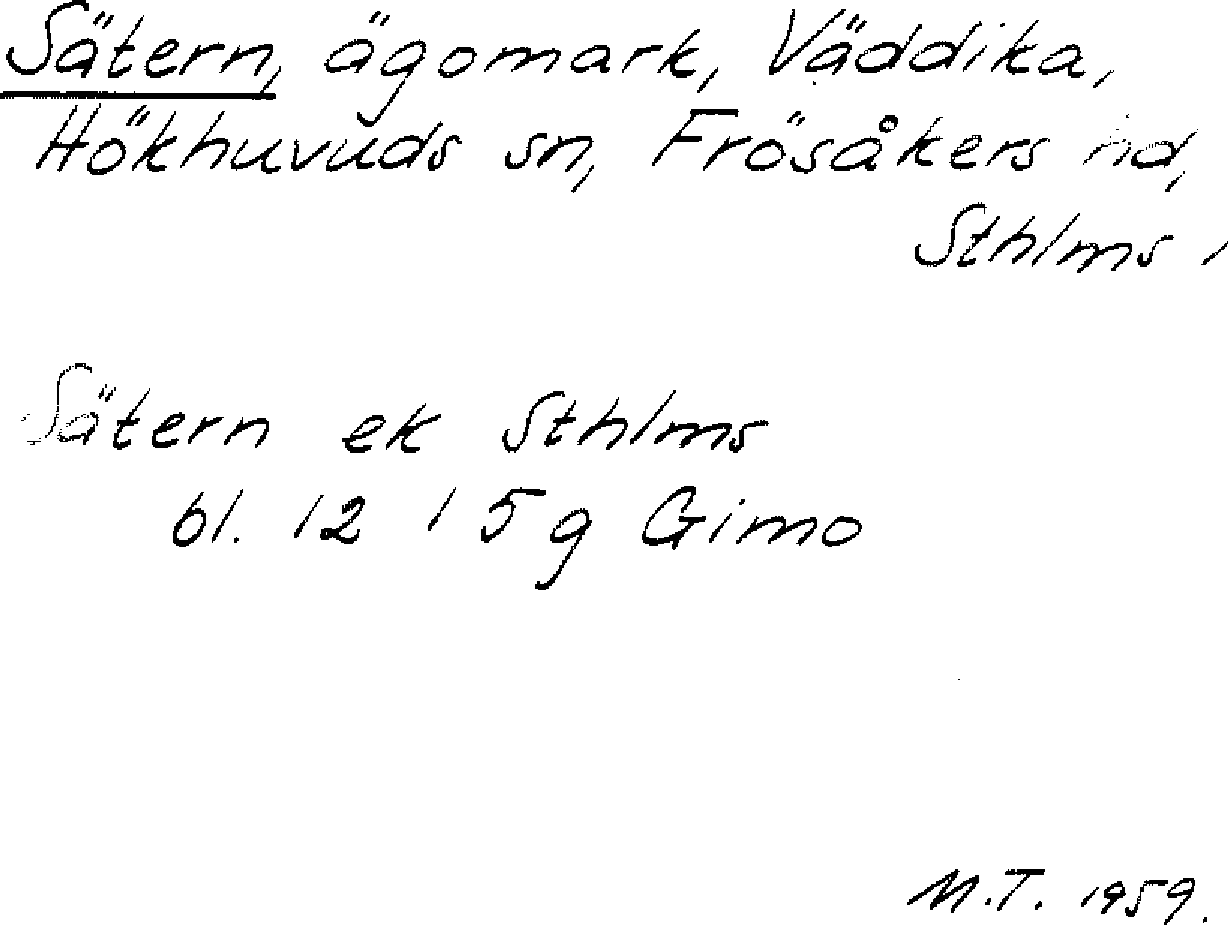 Sätern, ägomark, Väddika,
Hökhuvuds sn, Frösåkers hd,
Sthlms l
Sätern ek Sthlms
bl. 12 I 5g Gimo
M.T. 1959.